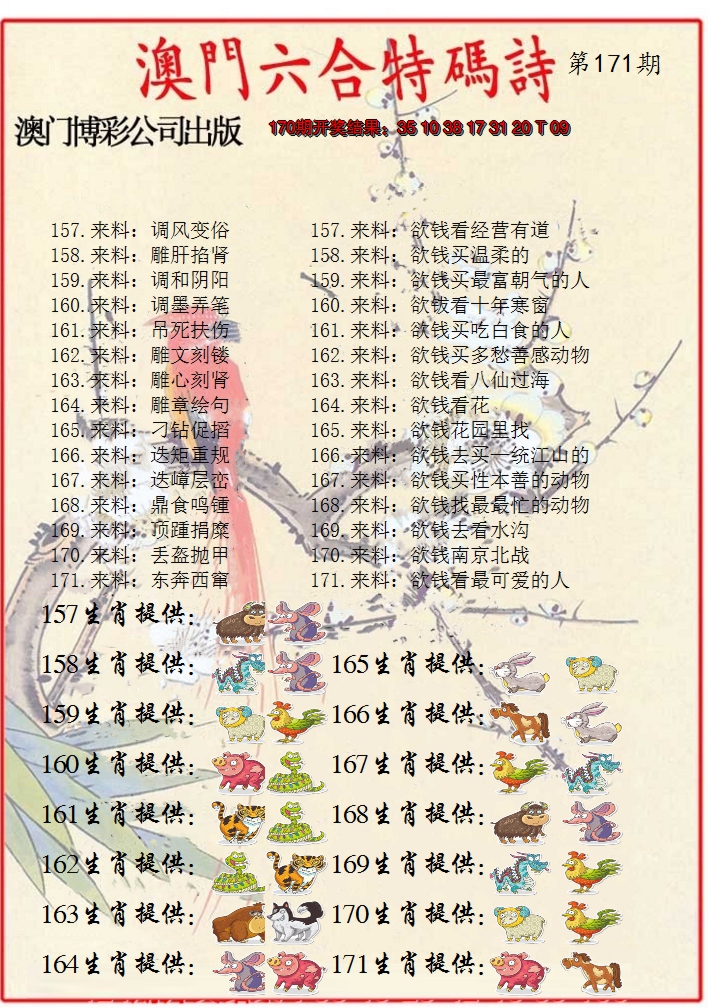 澳門六合特碼詩 第171期
澳门博彩公司出版 170期开奖结果：35 10 38 17 31 20 T 09
157.来料：调风变俗 157.来料：欲钱看经营有道
158.来料：雕肝掐肾 158.来料：欲钱买温柔的
159.来料：调和阴阳 159.来料：欲钱买最富朝气的人
160.来料：调墨弄笔 160.来料：欲钱看十年寒窗
161.来料：吊死扶伤 161.来料：欲钱买吃白食的人
162.来料：雕文刻镂 162.来料：欲钱买多愁善感动物
163.来料：雕心刻肾 163.来料：欲钱看八仙过海
164.来料：雕章绘句 164.来料：欲钱看花
165.来料：刁钻促搯 165.来料：欲钱花园里找
166.来料：迭矩重规 166.来料：欲钱去买一统江山的
167.来料：迭嶂层峦 167.来料：欲钱买性本善的动物
168.来料：鼎食鸣锺 168.来料：欲钱找最最忙的动物
169.来料：顶踵捐糜 169.来料：欲钱去看水沟
170.来料：丢盔抛甲 170.来料：欲钱南京北战
171.来料：东奔西窜 171.来料：欲钱看最可爱的人
157生肖提供：
158生肖提供： 165生肖提供：
159生肖提供： 166生肖提供：
160生肖提供： 167生肖提供：
161生肖提供： 168生肖提供：
162生肖提供： 169生肖提供：
163生肖提供： 170生肖提供：
164生肖提供： 171生肖提供：